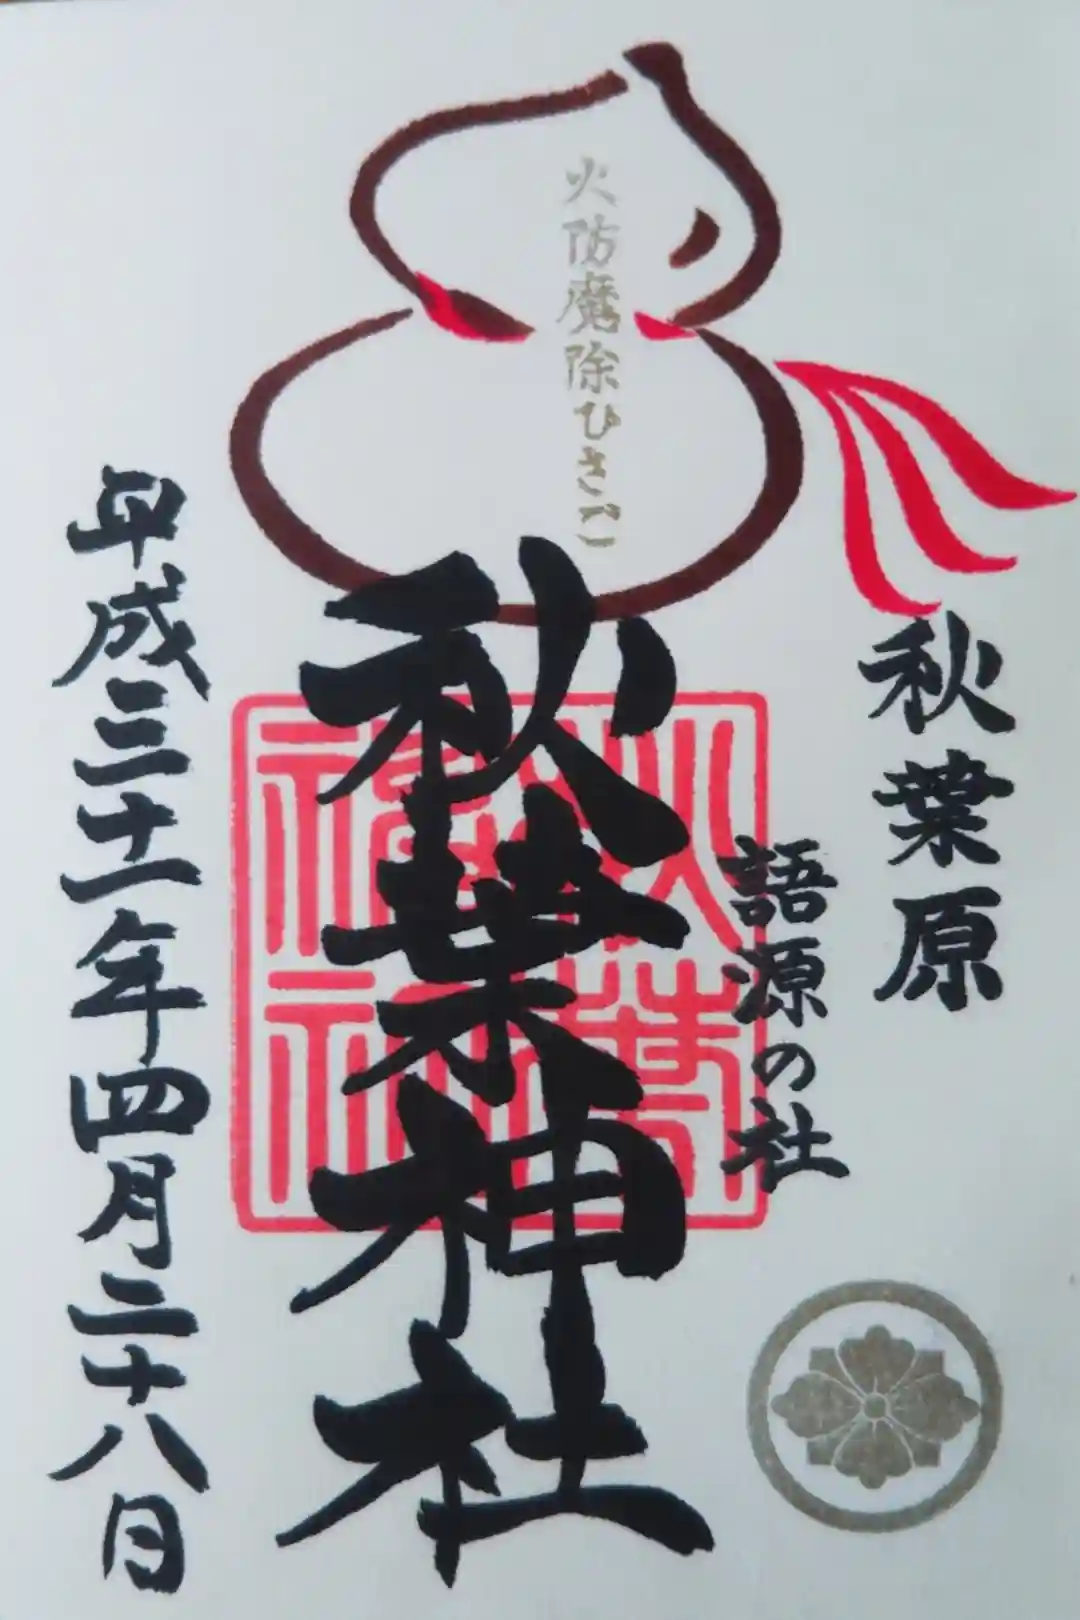 秋葉原
語源の社
火防魔除ひさご
秋葉神社
平成三十一年四月二十八日